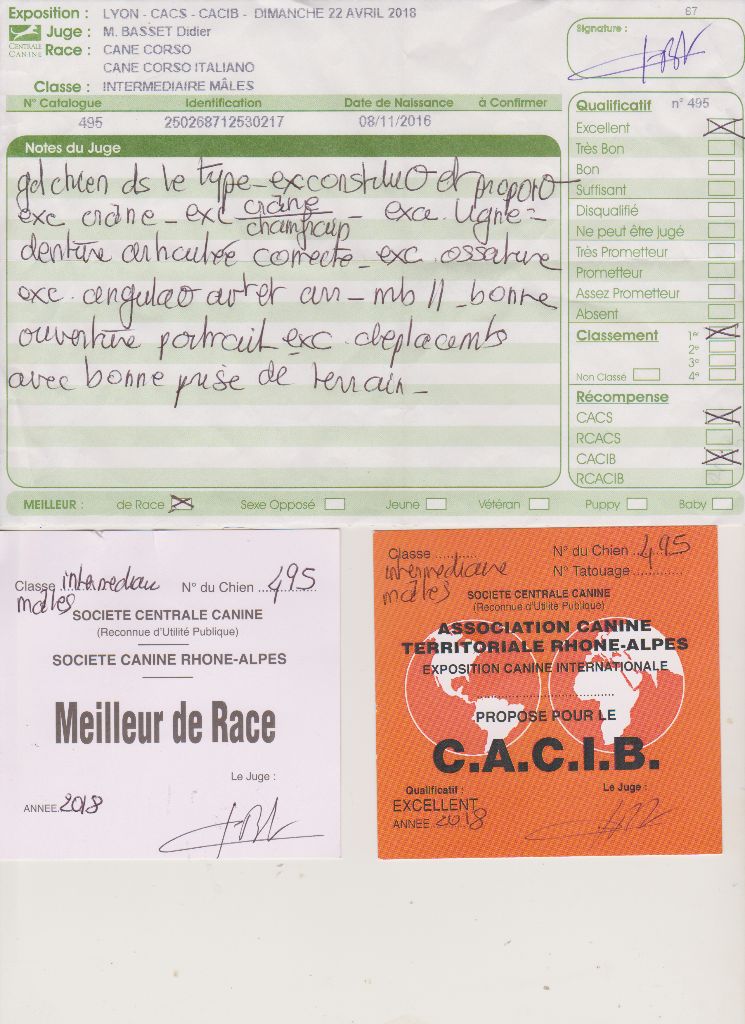 Exposition : LYON - CACS - CACIB - DIMANCHE 22 AVRIL 2018
67
CENTRALE CANINE
Juge : M. BASSET Didier
Race : CANE CORSO
CANE CORSO ITALIANO
Classe : INTERMEDIAIRE MÂLES
Signature :
N° Catalogue Identification Date de Naissance à Confirmer
495 250268712530217 08/11/2016
Notes du Juge
gd chien ds le type - ex construc° et proport°
exc crâne - exc crâne
chanfrein - exc. ligne =
denture articulée correcte - exc. ossature
exc. angulat° avt et arr - mb // - bonne
ouverture poitrail exc. deplacemts
avec bonne prise de terrain -
Qualificatif n° 495
Excellent
Très Bon
Bon
Suffisant
Disqualifié
Ne peut être jugé
Très Prometteur
Prometteur
Assez Prometteur
Absent
Classement 1er
2e
3e
Non Classé 4e
Récompense
CACS
RCACS
CACIB
RCACIB
MEILLEUR : de Race Sexe Opposé Jeune Vétéran Puppy Baby
Classe intermediaire N° du Chien 495
mâles
SOCIETE CENTRALE CANINE
(Reconnue d'Utilité Publique)
SOCIETE CANINE RHONE-ALPES
Meilleur de Race
Le Juge :
ANNEE 2018
Classe .......... N° du Chien 495
intermediaire N° Tatouage ............
mâles
SOCIETE CENTRALE CANINE
(Reconnue d'Utilité Publique)
ASSOCIATION CANINE
TERRITORIALE RHONE-ALPES
EXPOSITION CANINE INTERNATIONALE
PROPOSE POUR LE
C.A.C.I.B.
Qualificatif : Le Juge :
EXCELLENT
ANNEE 2018